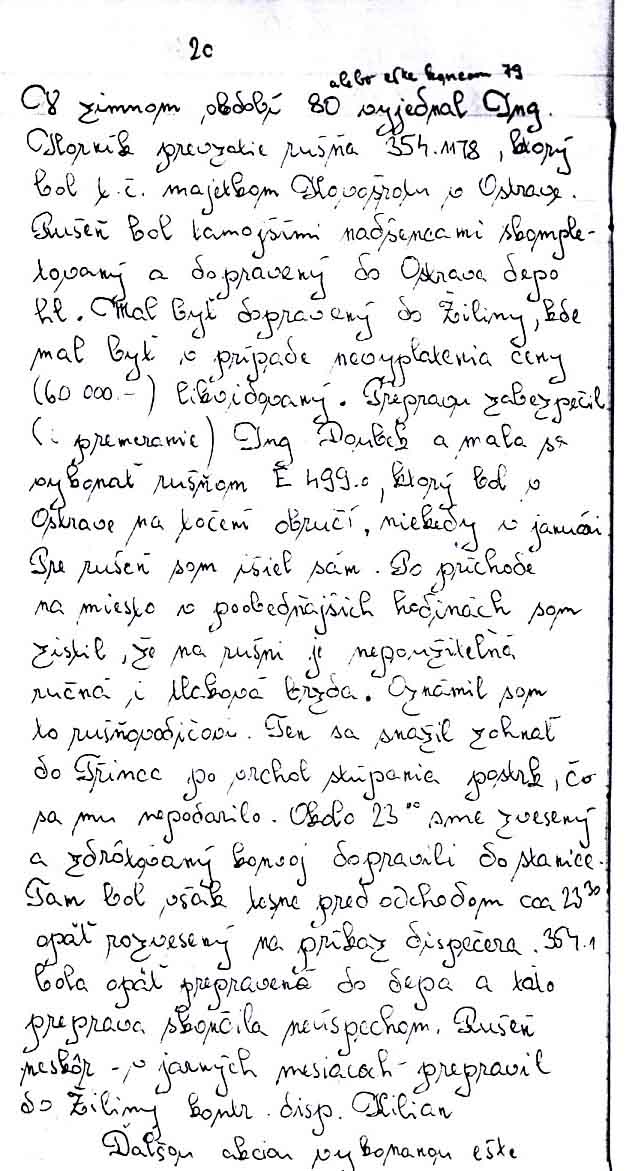 2c
alebo ešte koncom 79
V zimnom období 80 vyjednal Ing.
Horník prevzatie rušňa 354.1178, ktorý
bol t.č. majetkom Kovošrotu v Ostrave.
Rušeň bol tamojšími nadšencami skomple-
tovaný a dopravený do Ostrava depo
hl. Mal byť dopravený do Žiliny, kde
mal byť v prípade nevyplatenia ceny
(60 000.-) likvidovaný. Prepravu zabezpečil
(i premeranie) Ing Doubek a mala sa
vykonať rušňom E 499.0, ktorý bol v
Ostrave na točení obručí, niekedy v januári
Pre rušeň som išiel sám. Po príchode
na miesto v poobedňajších hodinách som
zistil, že na rušni je nepoužitelná
ručná i tlaková brzda. Oznámil som
to rušňovodičovi. Ten sa snažil zohnať
do Třinca po vrchol stúpania postrk, čo
sa mu nepodarilo. Okolo 23⁰⁰ sme zvesený
a zdrôtovaný konvoj dopravili do stanice.
Tam bol však tesne pred odchodom cca 23³⁰
opäť rozvesený na príkaz dispečera. 354.1
bola opäť prepravená do depa a táto
preprava skončila neúspechom. Rušeň
neskôr - v jarných mesiacoch - prepravil
do Žiliny kontr. disp. Kilian
Ďalšou akciou vykonanou ešte